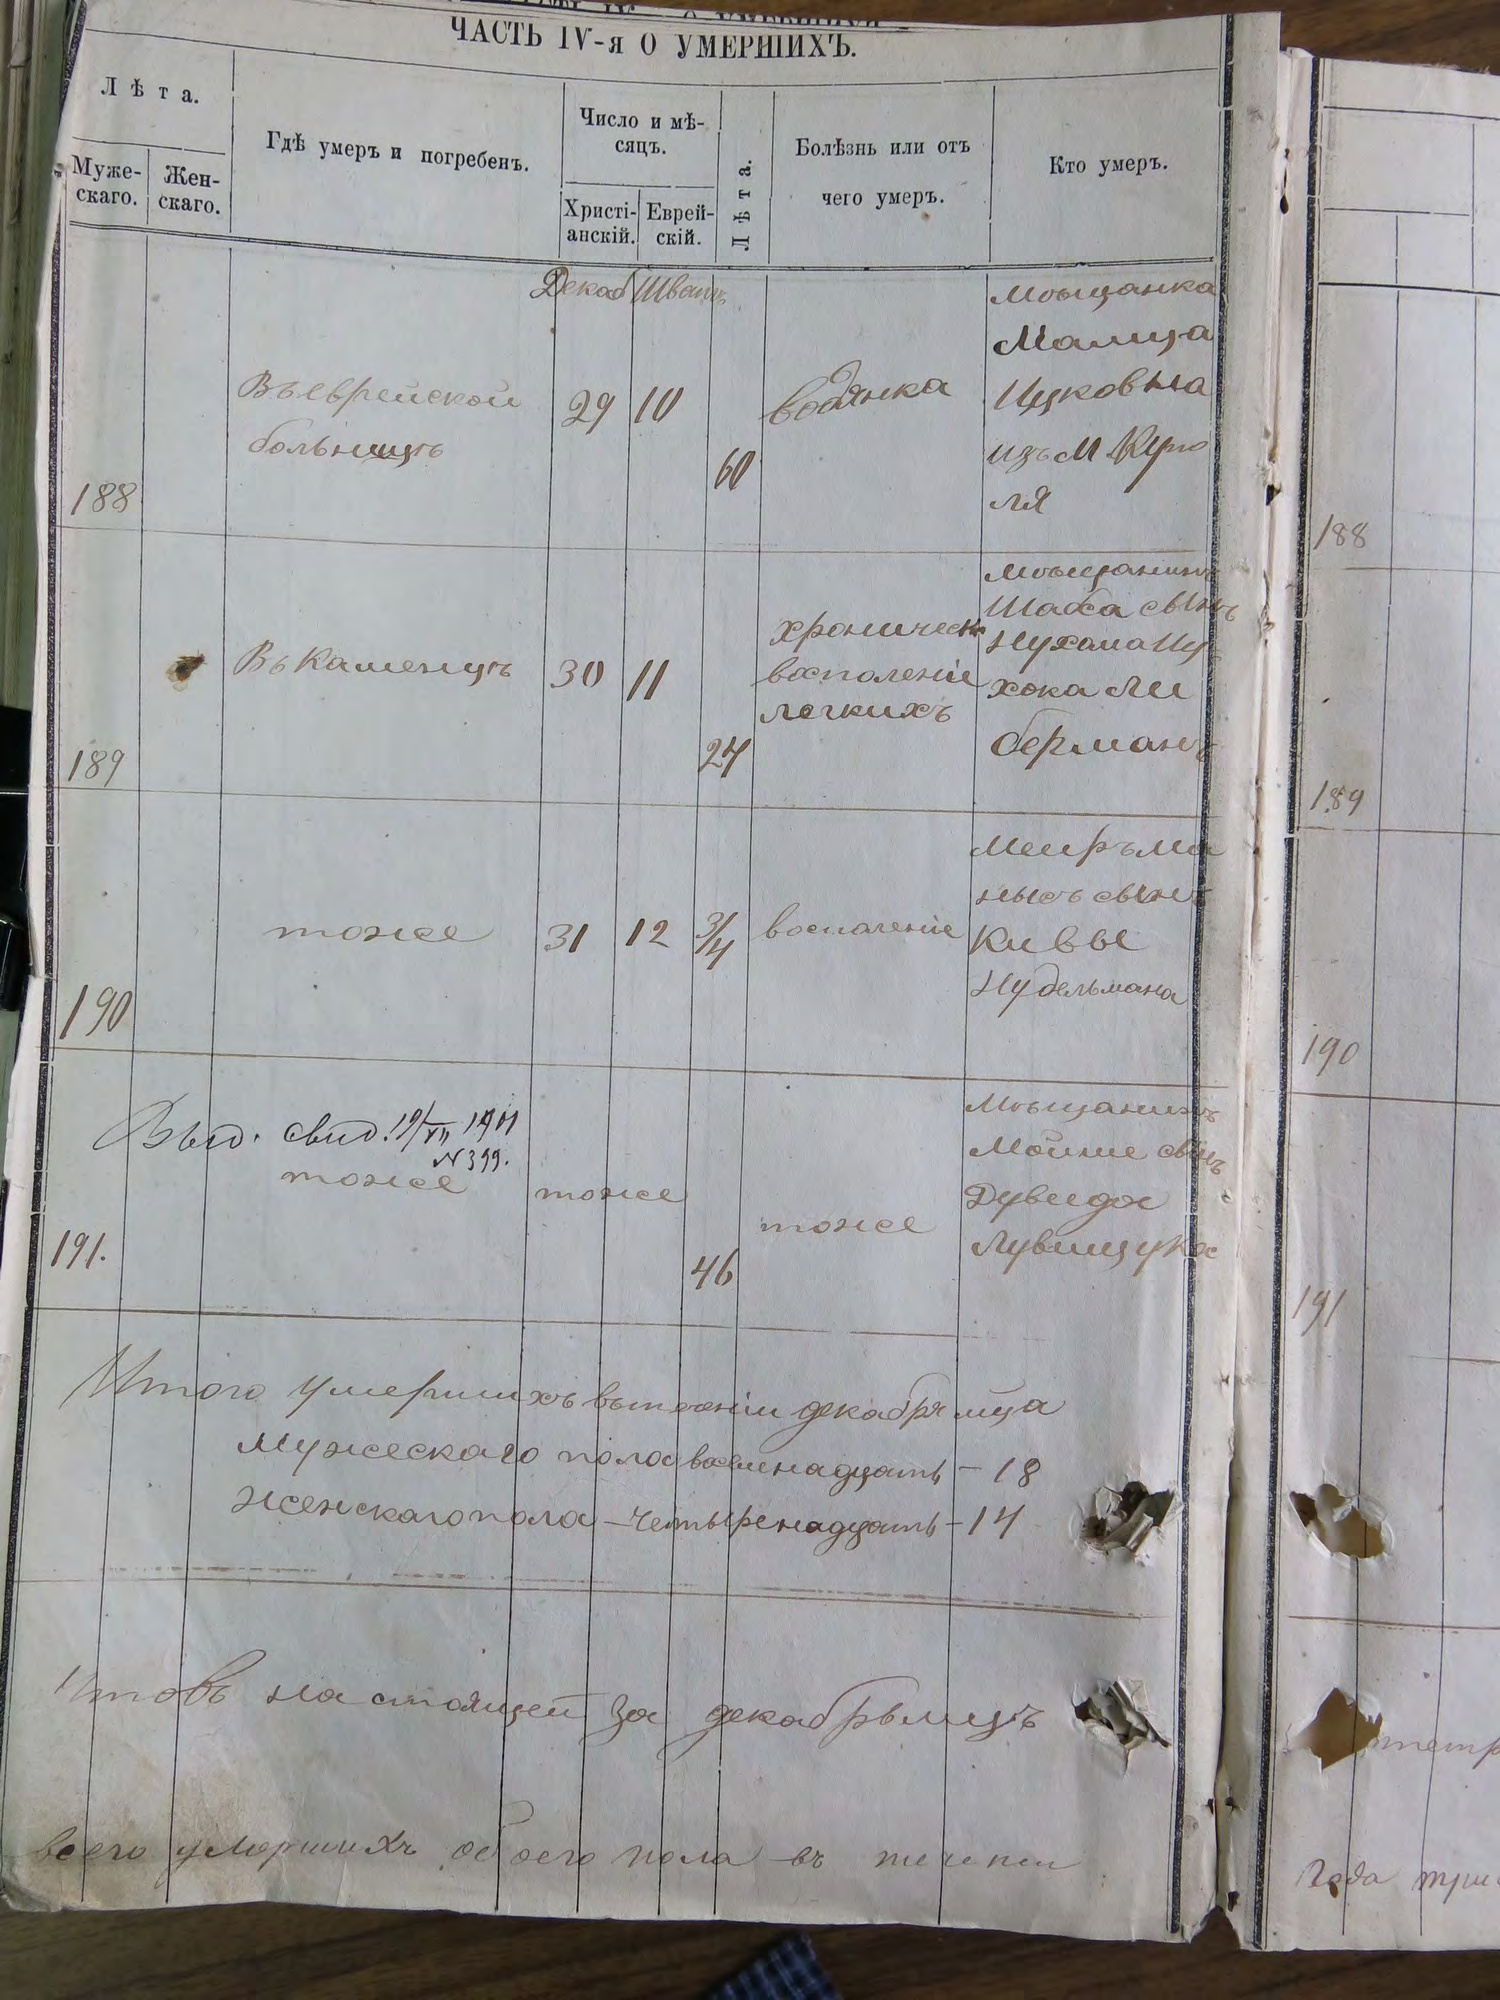 ЧАСТЬ IV-я О УМЕРШИХЪ.
Лѣта.
Муже-
скаго.
Жен-
скаго.
Гдѣ умеръ и погребенъ.
Число и мѣ-
сяцъ.
Христі-
анскій.
Еврей-
скій.
Лѣта.
Болѣзнь или отъ
чего умеръ.
Кто умеръ.
Декаб
188
Въ еврейской
больницѣ
29
10
60
водянка
Мѣщанка
Малца
Ицковна
изъ м Купо
ля
189
Въ Каменцѣ
30
11
24
хроническ
воспаленіе
легкихъ
Мѣщанинъ
сынъ
берманъ
190
тоже
31
12
3/4
воспаленіе
Меиръ Ма
нысъ сынъ
Кивы
Нудельмана
Выд. свид. 19/XII 1901
N 399.
191.
тоже
тоже
46
тоже
Мѣщанинъ
Мойше сынъ
Дувида
Итого умершихъ въ теченіи декабря мца
Мужескаго пола восемнадцать - 18
Женскаго пола - четыренадцать - 14
настоящей за декабрь мцъ
всего умершихъ обоего пола въ течении
188
189
190
191
тетр
Года